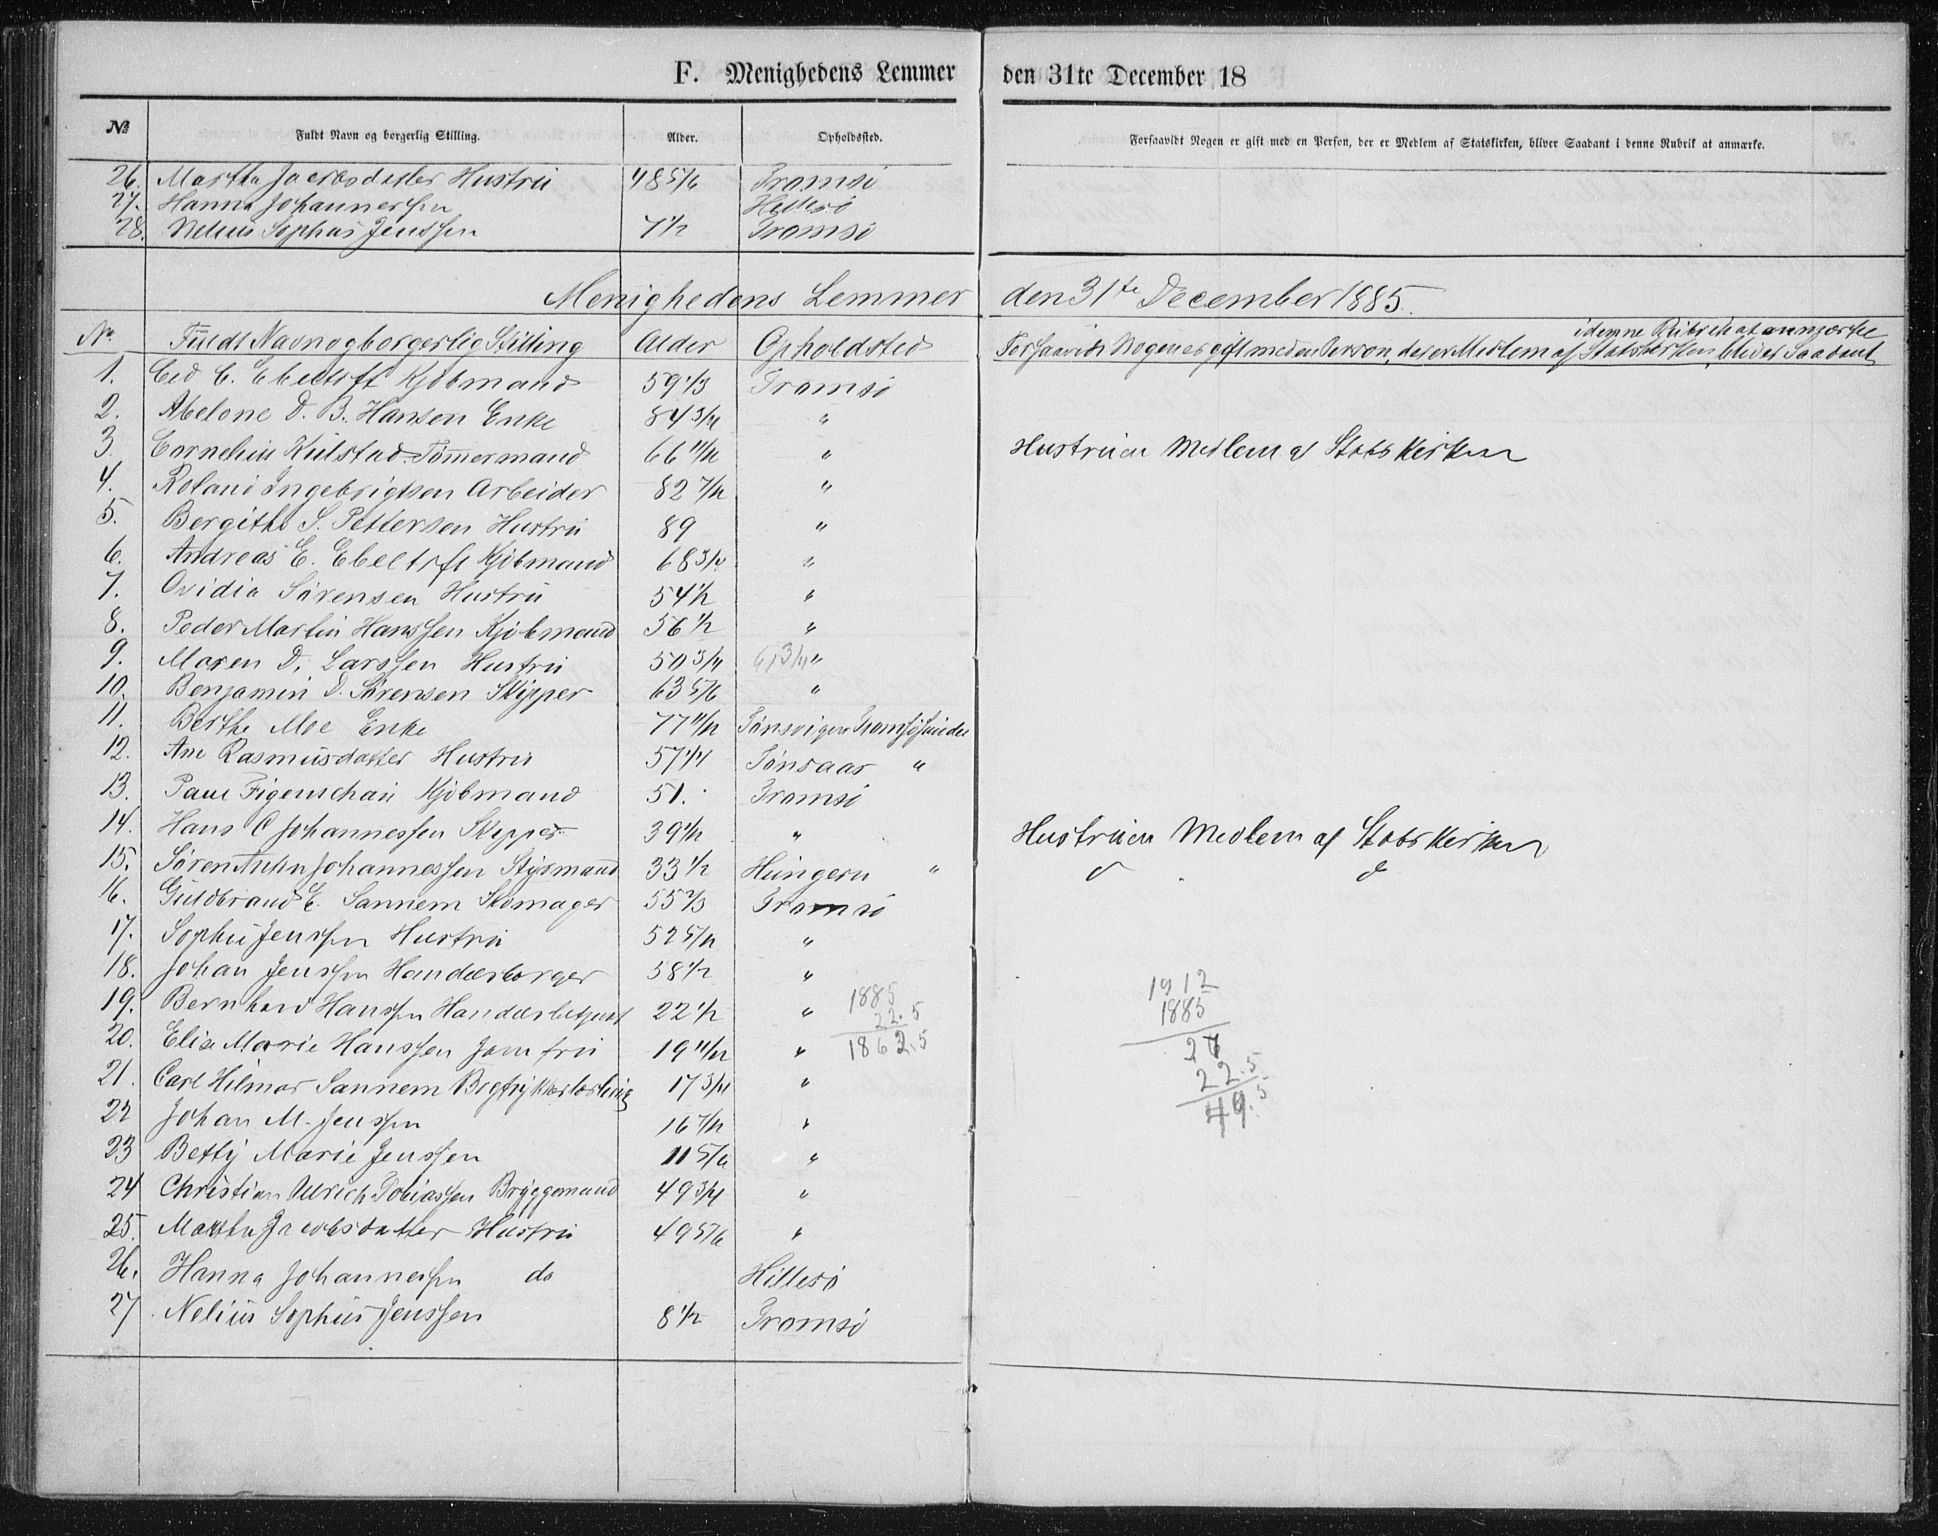 F. Menighedens Lemmer den 31te December 18
№ Fuldt Navn og borgerlig Stilling. Alder. Opholdssted. Forsaavidt Nogen er gift med en Person, der er Medlem af Statskirken, bliver Saadant i denne Rubrik at anmærke.
26. Martha Jacobsdatter Hustru 48 5/6 Tromsø
27. Hanna Johannessen Hillesø
28. Nelius Sophus Jenssen 7 1/2 Tromsø
Menighedens Lemmer den 31te December 1885.
No. Fuldt Navn og borgerlig Stilling Alder Opholdsted Forsaavidt Nogen er gift med en Person, der er Medlem af Statskirken, bliver Saadant i denne Rubrik at anmærke
1. C. Ebeltoft Kjøbmand 59 1/3 Tromsø
2. Abelone D. B. Hansen Enke 84 3/4 "
3. Cornelius Kulstad Tømmermand 66 11/12 " Hustruen Medlem af Statskirken
4. Roland Ingebrigtsen Arbeider 82 7/12 "
5. Bergithe S. Pettersen Hustru 89 "
6. Andreas E. Ebeltoft Kjøbmand 68 3/4 "
7. Ovidia Sørensen Hustru 54 1/2 "
8. Peder Martin Hanssen Kjøbmand 56 1/2 "
9. Maren D. Larssen Hustru 50 3/4 61 3/4 "
10. Benjamin D. Sørensen Skipper 63 5/6 "
11. Berthe Moe Enke 77 11/12 Tønsvigen Tromsøsundet
12. Ane Rasmusdatter Hustru 57 1/4 Tønsaas "
13. Paul Figenschau Kjøbmand 51. Tromsø
14. Hans C Johannessen Skipper 39 1/12 " Hustruen Medlem af Statskirken
15. Søren Johannessen Styrmand 33 1/2 Hungeren " d d
16. Guldbrand E. Sannem Skomager 55 2/3 Tromsø
17. Sophie Jenssen Hustru 52 5/12 "
18. Johan Jenssen Handelsborger 58 1/2 "
19. Bernhard Hanssen Handelsbetjent 22 1/2 "
20. Elise Marie Hanssen Jomfru 19 11/12 "
21. Carl Hilmar Sannem Bogtrykkerlærling 17 3/4 "
22 Johan M. Jenssen 16 7/12 "
23 Betty Marie Jenssen 11 5/6 "
24 Christian Ulrich Tobiassen Bryggemand 49 3/4 "
25. Martha Jacobsdatter Hustru 49 5/6 "
26. Hanna Johannessen do Hillesø
27 Nelius Sophus Jenssen 8 1/2 Tromsø
1885
22.5
1862.5
1912
1885
27
22.5
49.5